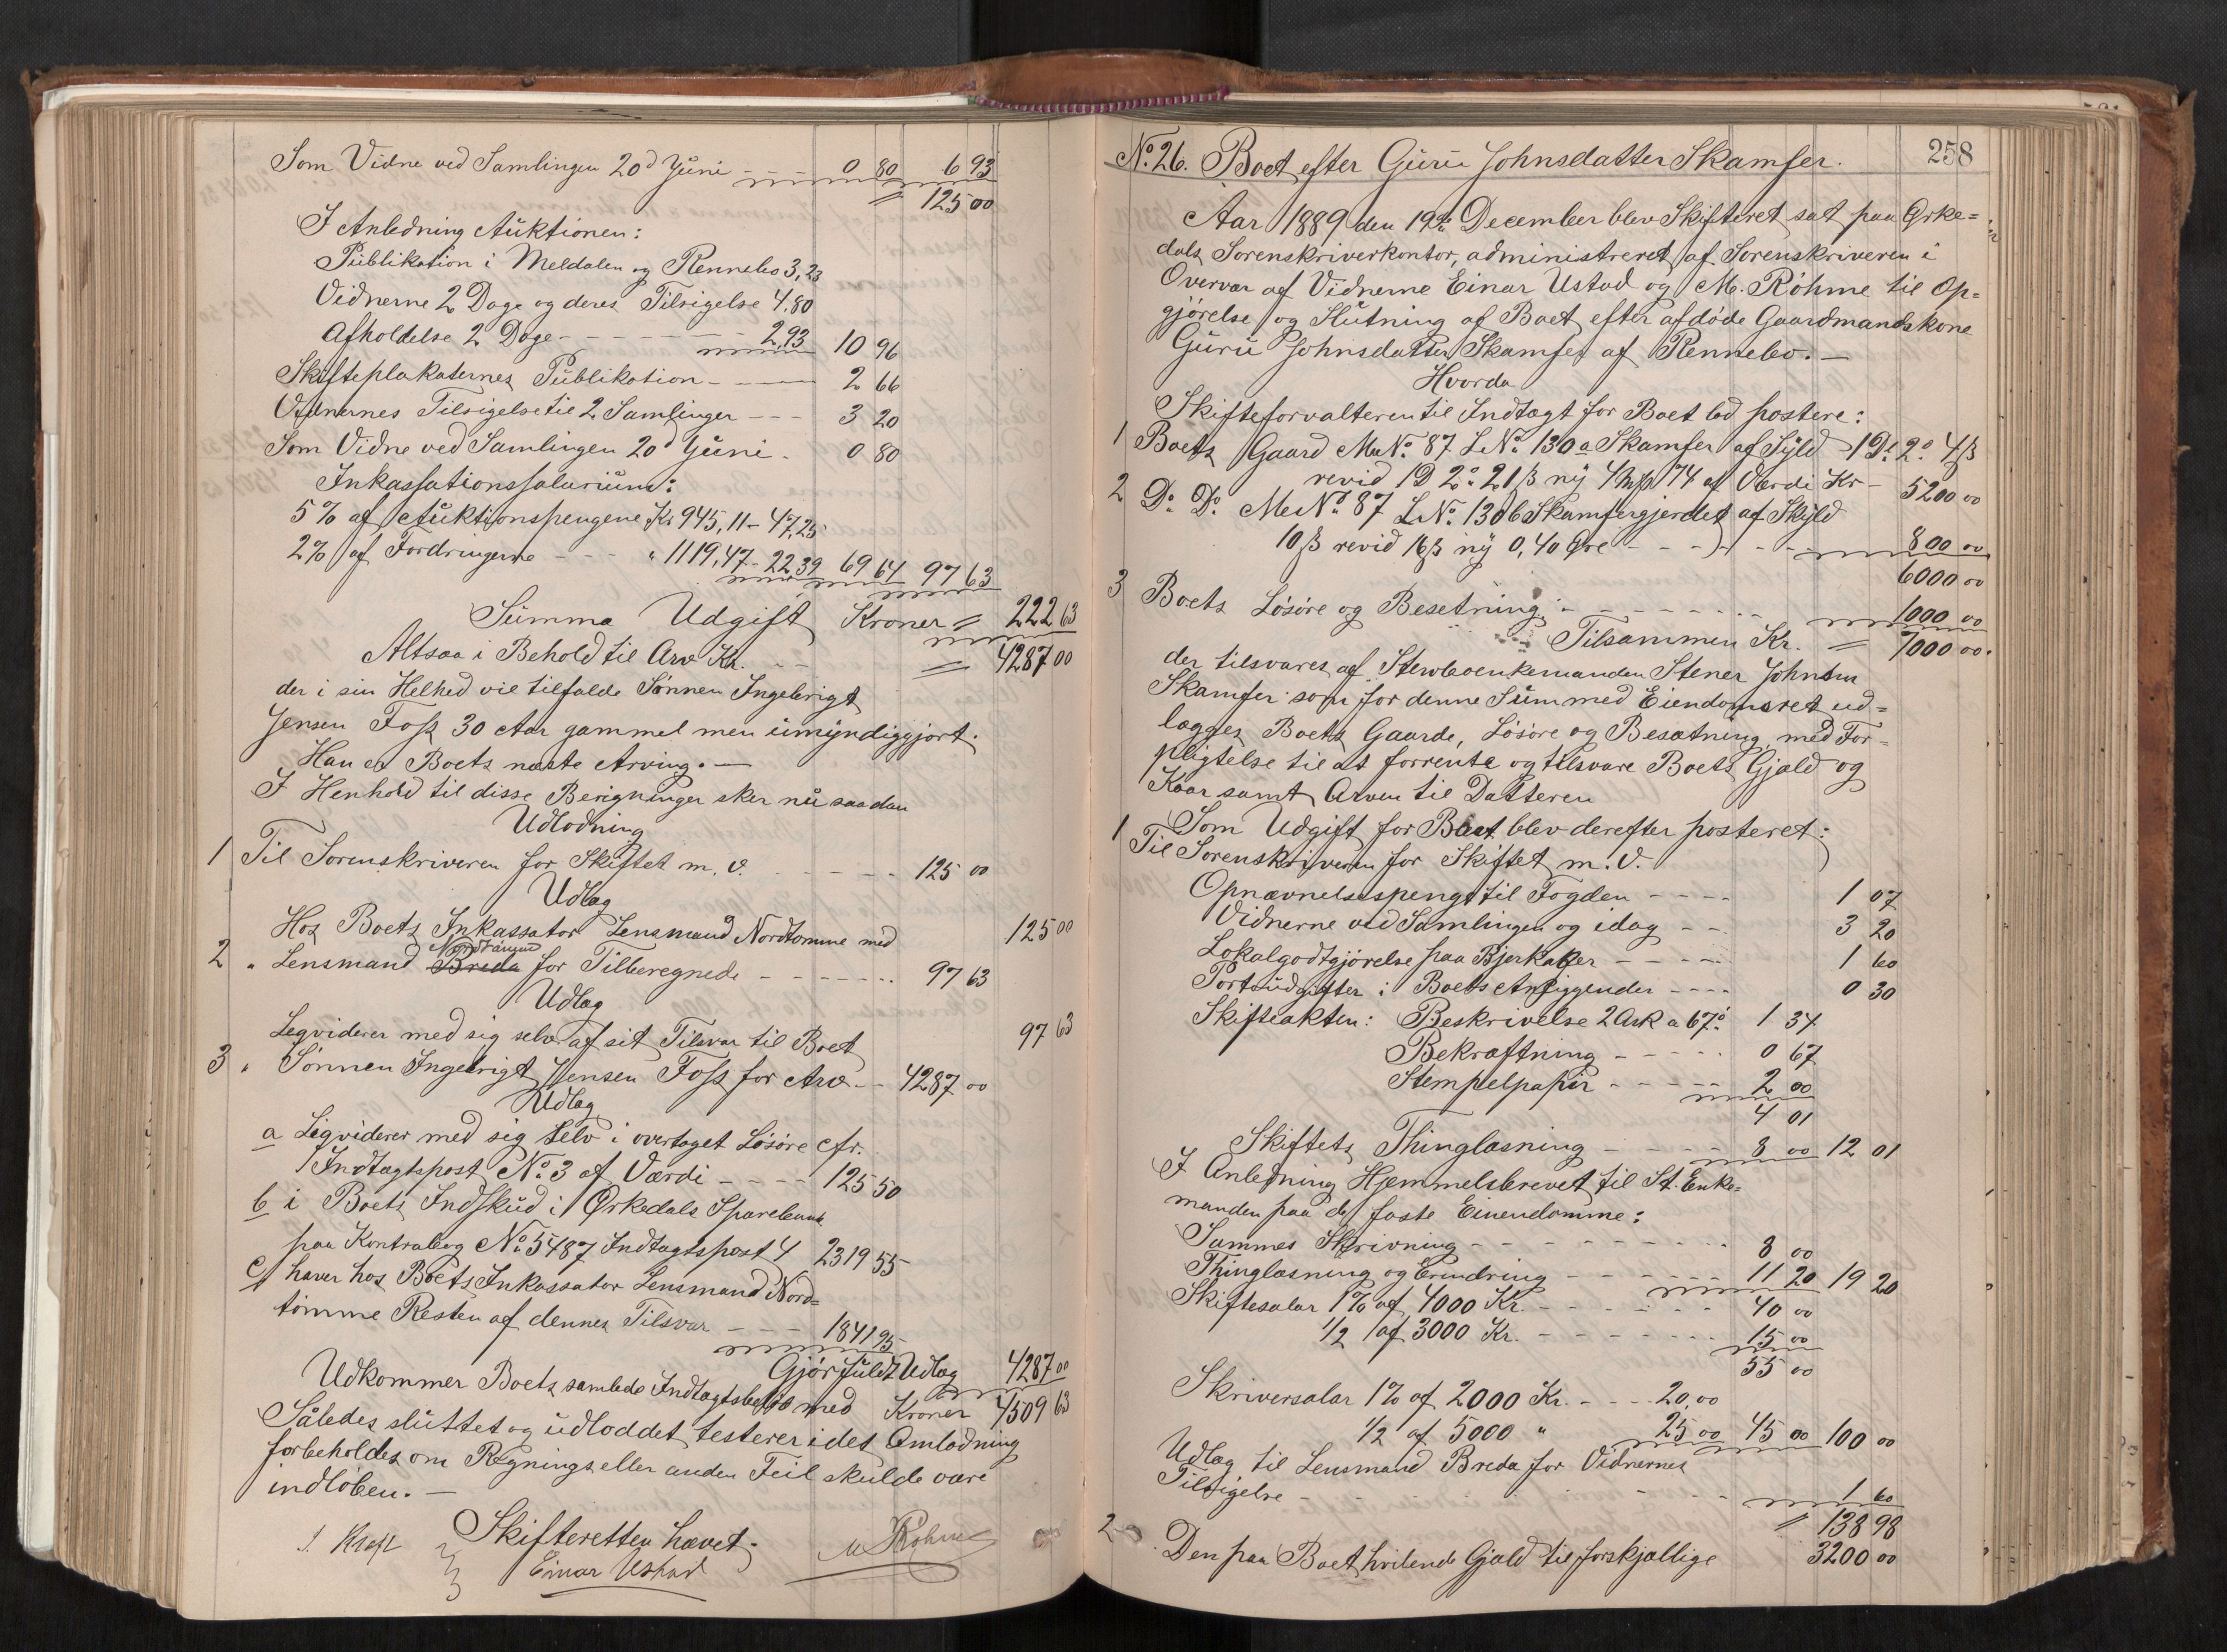 Som Vidne ved Samlingen 20d Juni 0 80 6 93
= 125 00
I Anledning Auktionen:
Publikation i Meldalen og Rennebo 3,23
Vidnerne 2 Dage og deres Tilsigelse 4.80
Afholdelse 2 Dage 2,93 10 96
Skifteplakaternes Publikation 2 66
Vidnernes Tilsigelse til 2 Samlinger 3 20
Som Vidne ved Samlingen 20d Juni 0 80
Inkassationssalarium:
5 % af Auktionspengene Kr 945,11 - 47,25
2% af Fordringerne " 1119,47 - 22,39 69 64 97 63
Summa Udgift Kroner = 222 63
Altsaa i Behold til Arv Kr. = 4287 00
der i sin Helhed vil tilfalde Sønnen Ingebrigt
Jensen Foss 30 Aar gammel men umyndiggjort.
Han er Boets næste Arving. —
I Henhold til disse Berigninger sker nu saadan
Udlodning
1 Til Sorenskriveren for Skiftet m. v. 125 00
Udlæg
Hos Boets Inkassator Lensmand Nordtømme med 125 00
Nordtømme
2 " Lensmand Breda for Tilberegnede 97 63
Udlæg
Leqviderer med sig selv af sit Tilsvar til Boet 97 63
3 " Sønnen Ingebrigt Jensen Foss for Arv 4287 00
Udlæg
a Liqviderer med sig selv i overtaget Løsøre cfr.
Indtægtspost No 3 af Værdi 125 50
b i Boets Indskud i Ørkedals Sparebank
paa Kontrabog No 5487 Indtægtspost 4 2319 55
c haver hos Boets Inkassator Lensmand Nord=
tømme Resten af dennes Tilsvar 1841 95
Gjør fuldt Udlæg 4287 00
Udkommer Boets samlede Indtægtsbeløb med Kroner 4509 63
Således sluttet og udloddet testerer idet Omlodning
forbeholdes om Regnings eller anden Feil skulde være
indløben. —
Skifteretten hævet.
J. Kraft Einar Ustad M Røhme
258
No 26. Boet efter Guru Johnsdatter Skamfer.
Aar 1889 den 19de December blev Skifteret sat paa Ørke=
dals Sorenskriverkontor, administreret af Sorenskriveren i
Overvær af Vidnerne Einar Ustad og M. Röhme til Op=
gjørelse og Slutning af Boet efter afdøde Gaardmandskone
Guru Johnsdatter Skamfer af Rennebo. —
Hvorda
Skifteforvalteren til Indtægt for Boet lod postere:
1 Boets Gaard MNo 87 LNo 130a Skamfer af Skyld 1D. 2o 4ß
revid 1D 2o 21ß ny 4 Mk 74 af Værdi Kr 5200 00
2 Do Do MNo 87 LNo 130b Skamfergjerdet af Skyld
10ß revid 16ß ny 0,40 Øre 800 00
6000 00
3 Boets Løsøre og Besetning 1000 00
Tilsammen Kr. = 7000 00.
der tilsvares af Stervboenkemanden Stener Johnsen
Skamfer som for denne Sum med Eiendomsret ud=
lægges Boets Gaarde, Løsøre og Besætning med For=
pligtelse til at forrente og tilsvare Boets Gjæld og
Kaar samt Arven til Datteren
Som Udgift for Boet blev derefter posteret:
1 Til Sorenskriveren for Skiftet m. v.
Opnævnelsespenge til Fogden 1 07
Vidnerne ved Samlingen og idag 3 20
Lokalgodtgjørelse paa Bjerkaker 1 60
Portoudgifter i Boets Anliggender 0 30
Skifteakten: Beskrivelse 2 Ark a 67ø 1 34
Bekræftning 0 67
Stempelpapir 2 00
4 01
Skiftets Thinglæsning 8 00 12 01
I Anledning Hjemmelsbrevet til St. Enke=
manden paa de faste Eiendomme:
Sammes Skrivning 8 00
Thinglæsning og Erindring 11 20 19 20
Skiftesalar 1% af 4000 Kr. 40 00
1/2 af 3000 Kr. 15 00
55 00
Skriversalar 1% af 2000 Kr. 20,00
1/2 af 5000 " 25 00 45 00 100 00
Udlæg til Lensmand Breda for Vidnernes
Tilsigelse 1 60
= 138 98
2 Den paa Boet hvilende Gjæld til forskjællige 3200 00